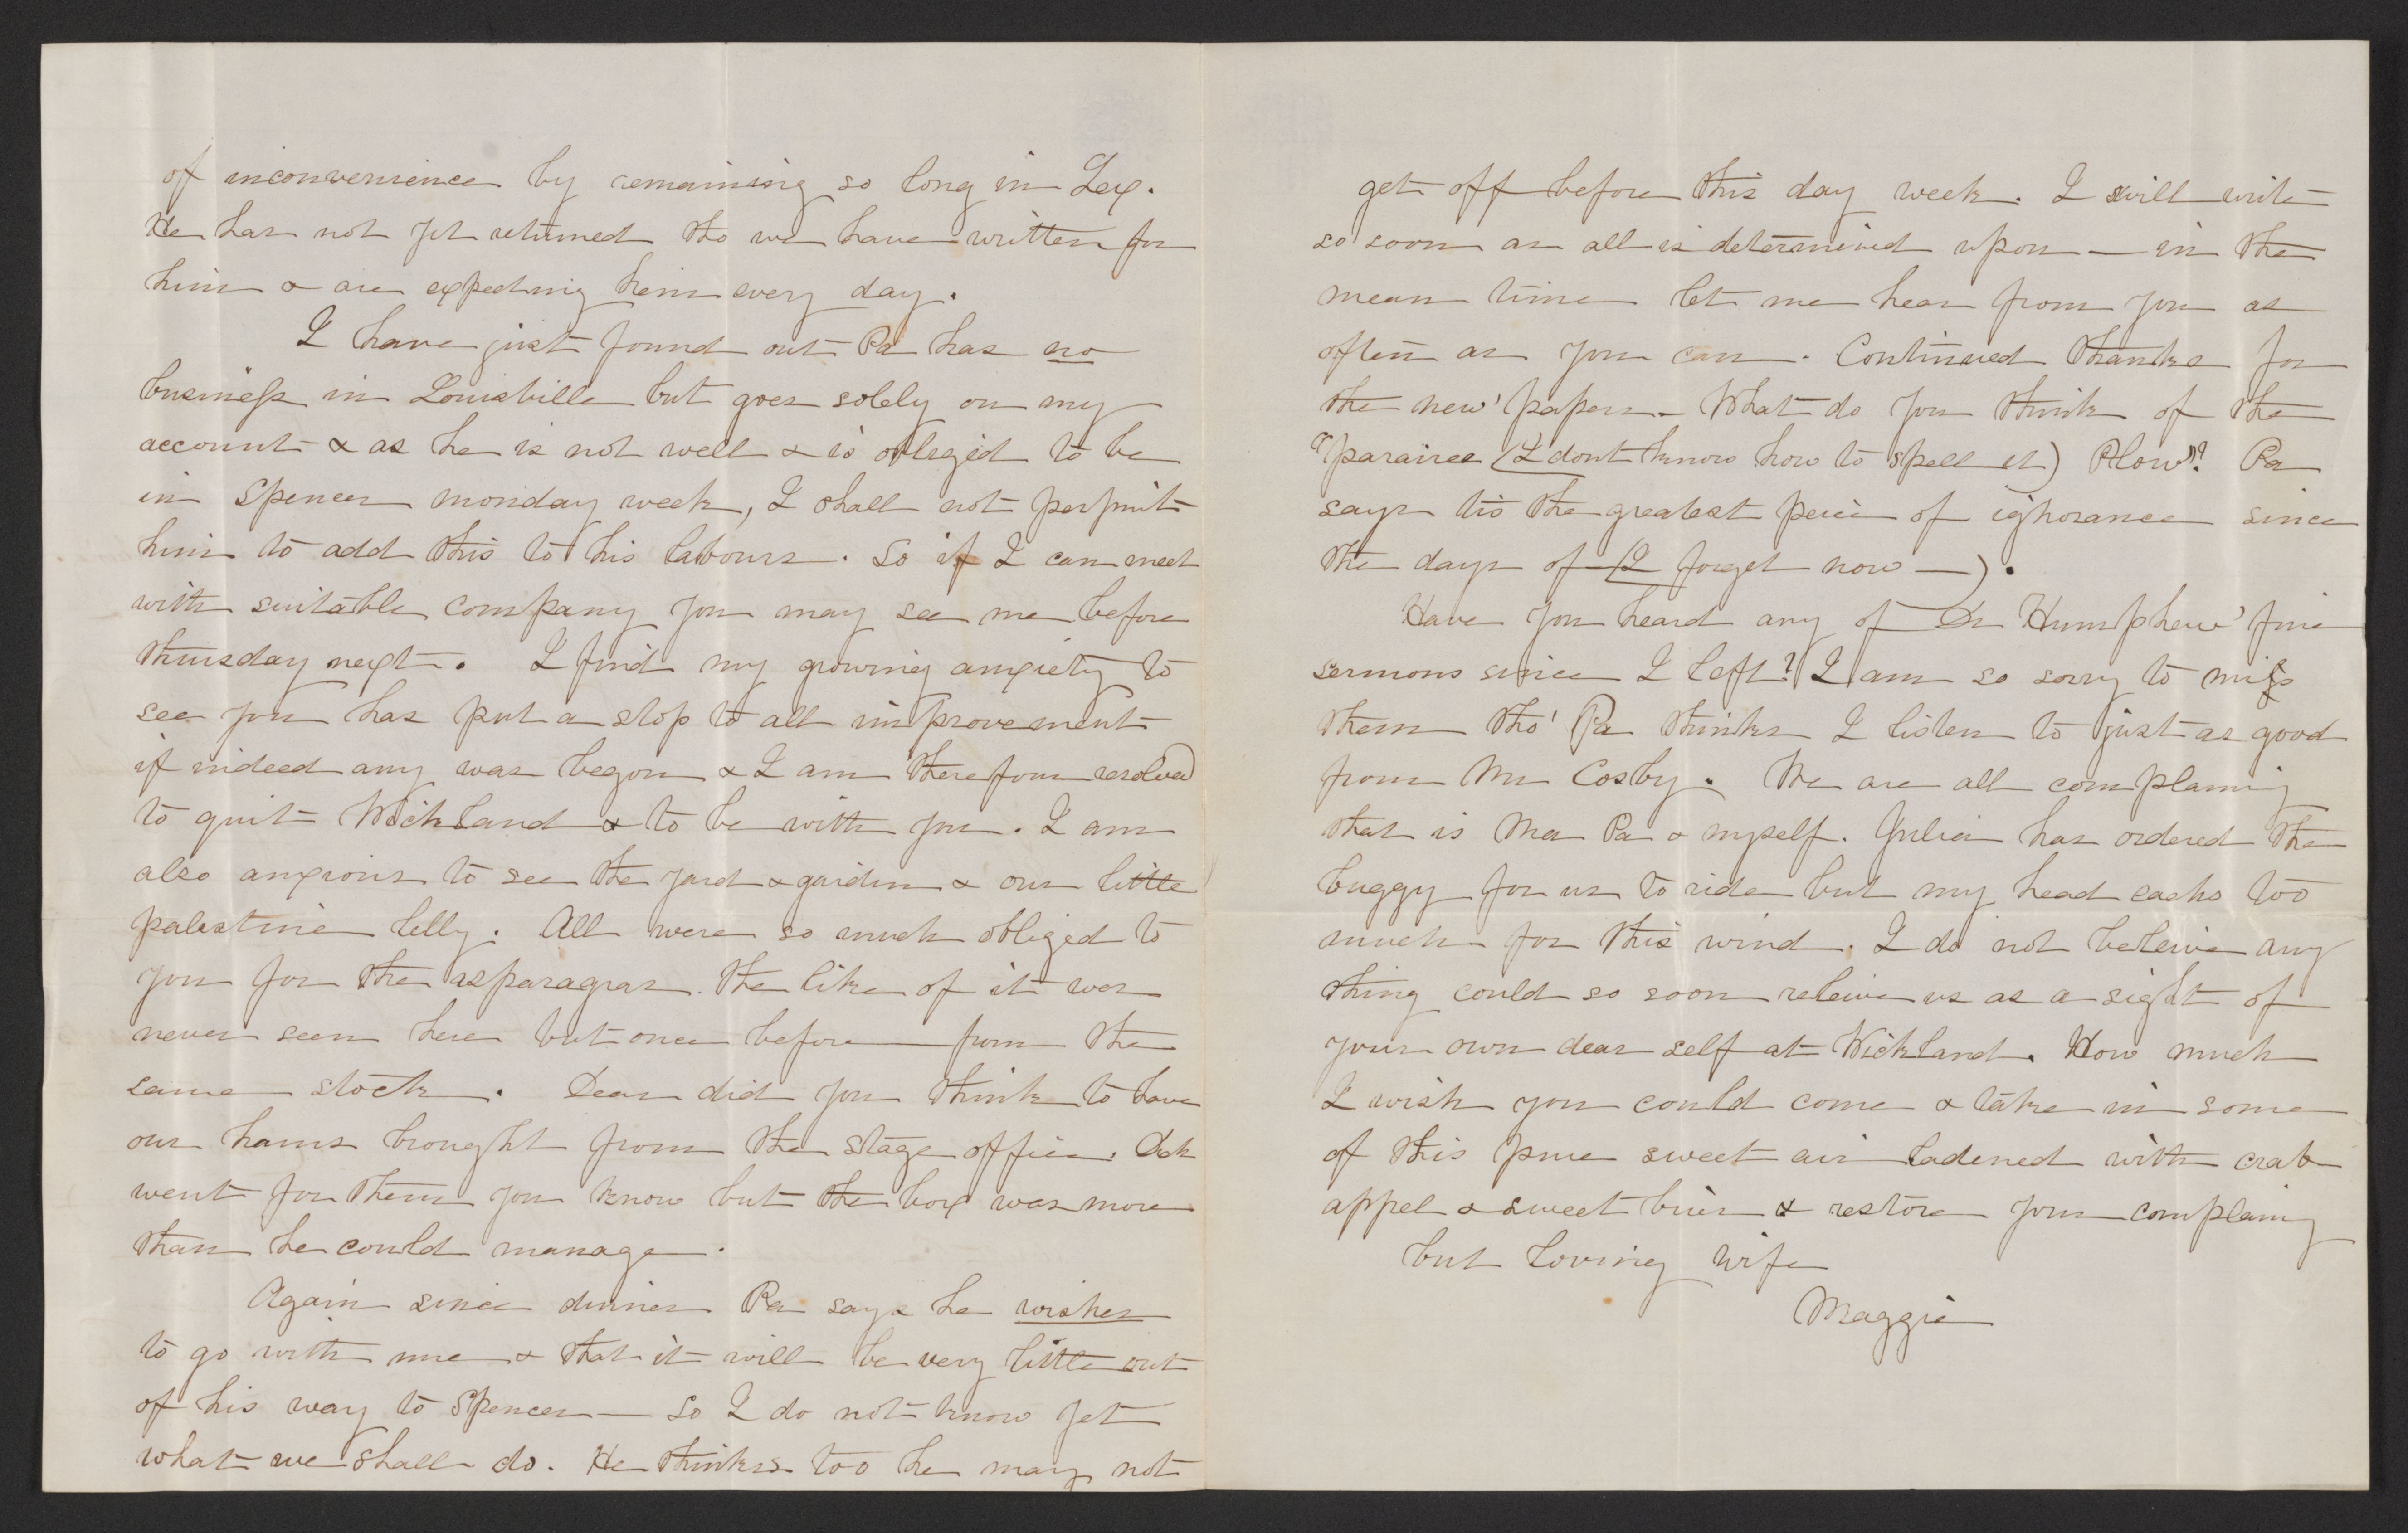 of inconvenience by remaining so long in Lex.
He has not yet returned tho we have written for
him & are expecting him every day.
I have just found out Pa has no
business in Louisville but goes solely on my
account & as he is not well & is obliged to be
in Spencer monday week, I shall not permit
him to add this to his labours. So if I can meet
with suitable company you may see me before
thursday next. I find my growing anxiety to
see you has put a stop to all improvement
if indeed any was begon & I am therefour resolved
to quit Wickland & to be with you. I am
also anxious to see the yard & garden & our little
palestine lilly. All were so much obliged to
you for the asparagras. the like of it was
never seen here but once before from the
same stock. Dear did you think to have
our hams brought from the stage office. Dek
went for them you know but the box was more
than he could manage.
Again since dinner Pa says he wishes
to go with me & that it will be very little out
of his way to Spencer — so I do not know yet
what we shall do. He thinks too he may not
get off before this day week. I will write
so soon as all is determined upon — in the
mean time let me hear from you as
often as you can. Continued thanks for
the new' papers. What do you think of the
"parairee (I dont know how to spell it) Plow"? Pa
says tis the greatest peice of ighorance since
the days of (I forget now —).
Have you heard any of Dr Humphew' fine
sermons since I left? I am so sorry to miss
them tho' Pa thinks I listen to just as good
from Mr Cosby. We are all complaning
that is Ma Pa & myself. Julia has ordered the
buggy for us to ride but my head eachs too
much for this wind. I do not beleive any
thing could so soon releive us as a sight of
your own dear self at Wickland. How much
I wish you could come & take in some
of this pure sweet air ladened with crab
appel & sweet brier & restore your complaing
but loving wife
Maggie